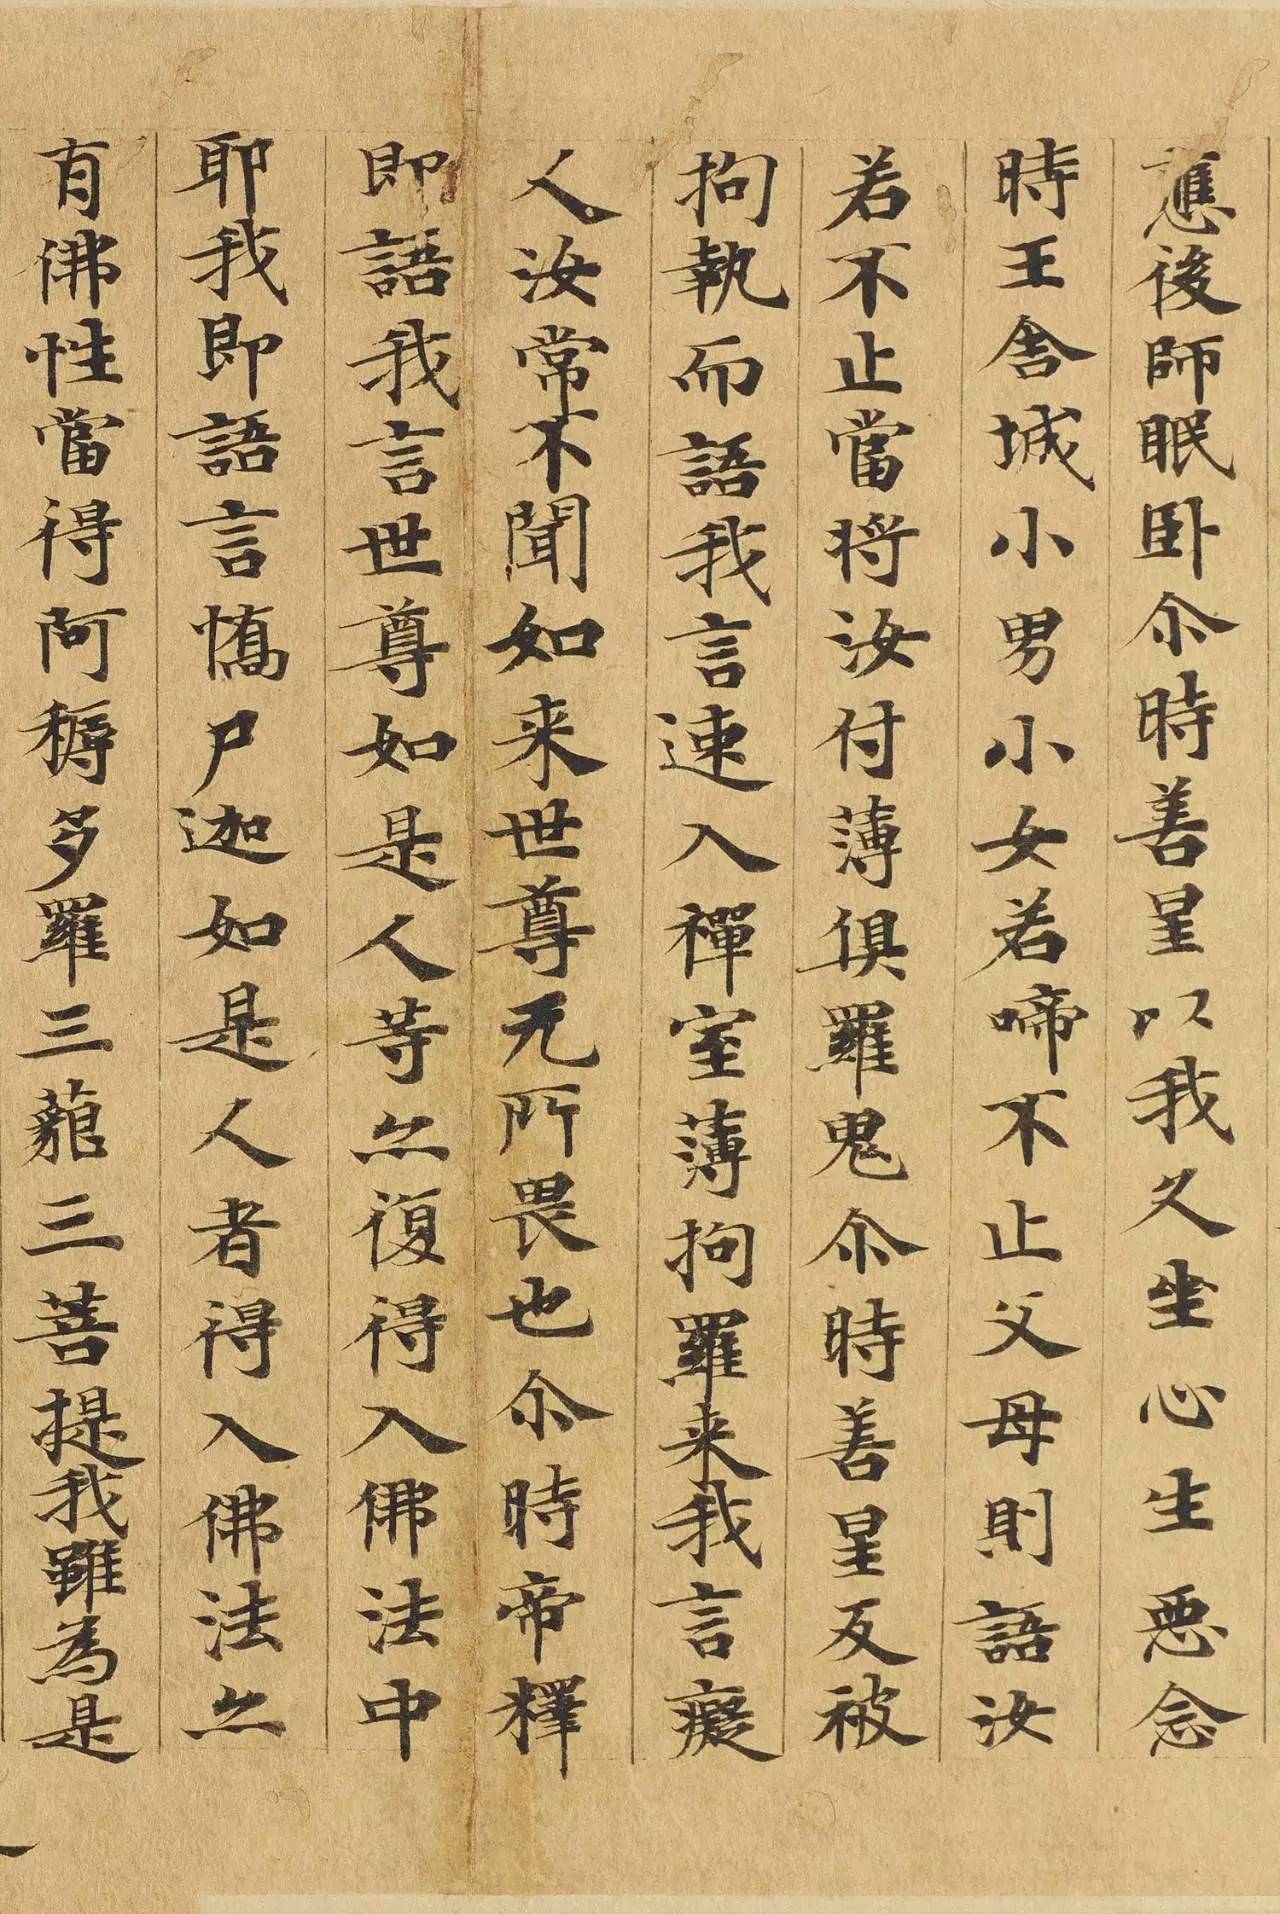 應後師眠卧尒時善星以我久坐心生惡念
時王舎城小男小女若啼不止父母則語汝
若不止當将汝付薄俱羅鬼尒時善星反被
拘執而語我言速入禪室薄拘羅来我言癡
人汝常不聞如来世尊无所畏也尒時帝釋
即語我言世尊如是人等亦復得入佛法中
耶我即語言憍尸迦如是人者得入佛法亦
有佛性當得阿耨多羅三藐三菩提我雖為是